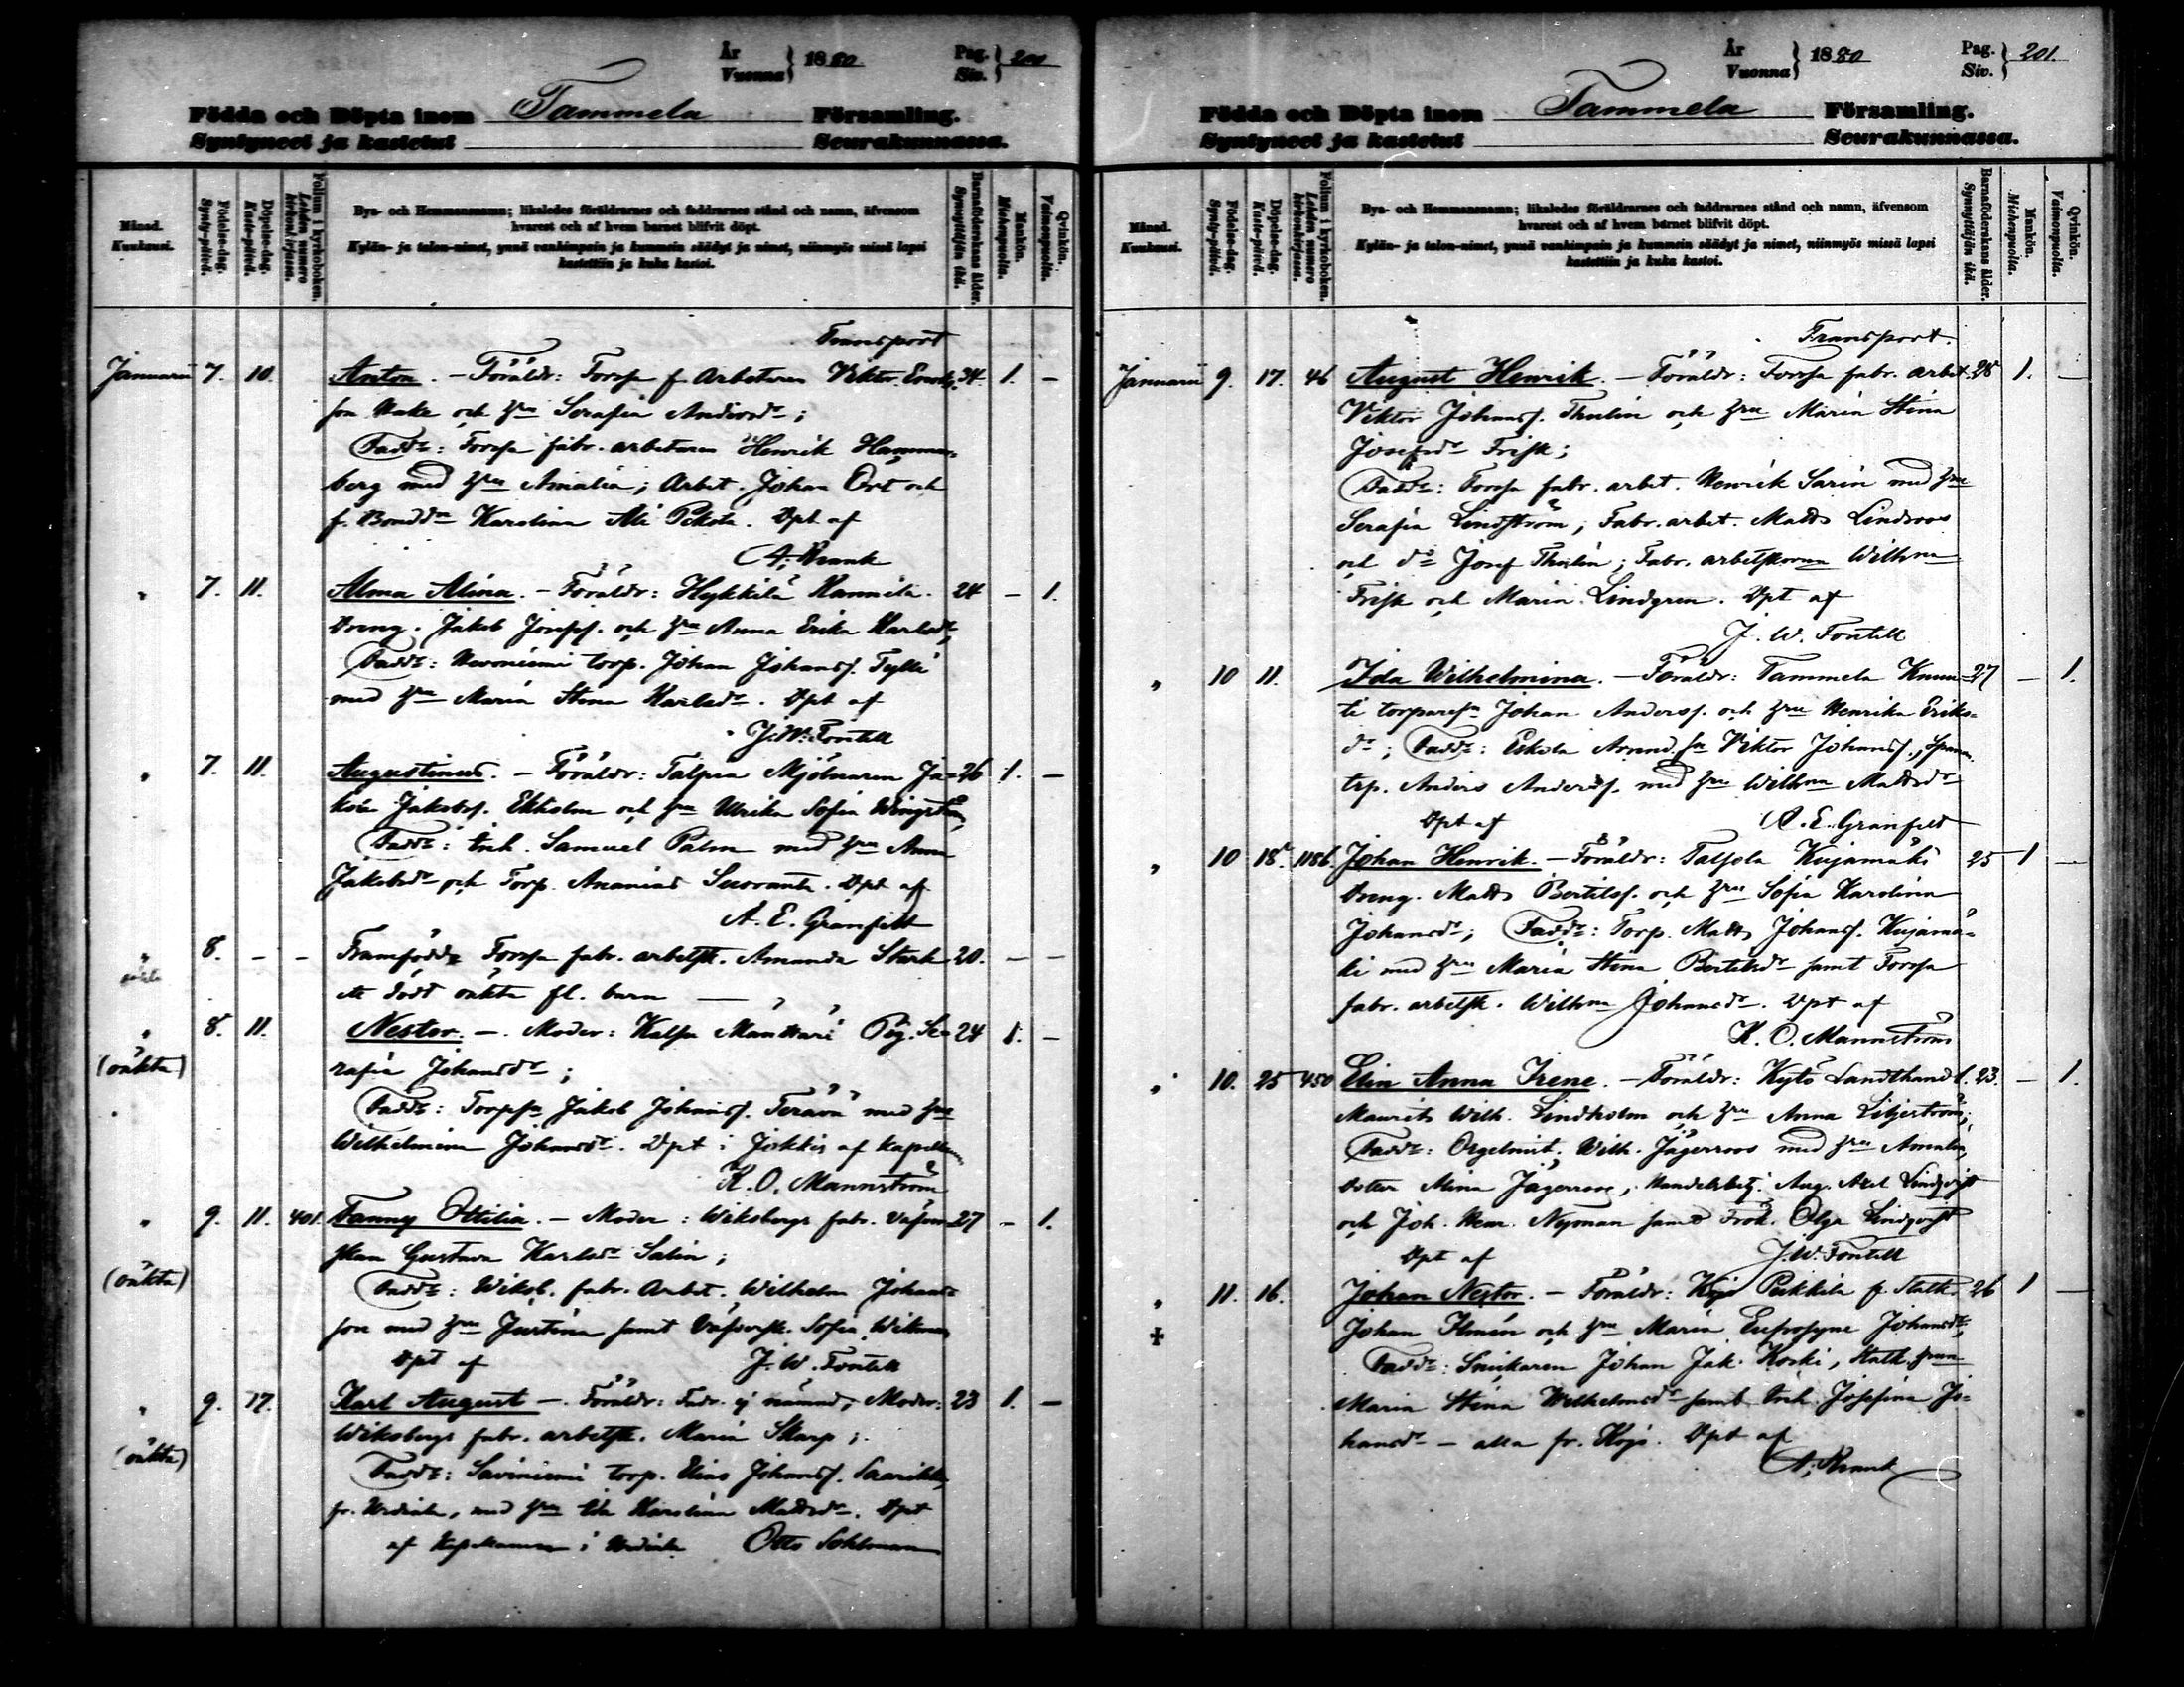 År
Vuonna } 1880 Pag.
Siv. } 200
Födda och Döpta inom Tammela Församling.
Syntyneet ja kastetut Seurakunnassa.
Månad.
Kuukausi.
Födelse-dag.
Synty-päivä.
Döpelse-dag.
Kaste-päivä.
Folium i kyrkoboken.
Lehden numero kirkonkirjassa.
Bya- och Hemmansnamn; likaledes föräldrarnes och faddrarnes stånd och namn, äfvensom
hvarest och af hvem barnet blifvit döpt.
Kylän- ja talon-nimet, ynnä vanhimpain ja kummein säädyt ja nimet, niinmyös missä lapsi
kastettiin ja kuka kastoi.
Barnaföderskans ålder.
Synnyttäjän ikä.
Mankön.
Miehenpuolia.
Qvinkön.
Vaimonpuolia.
Transport
Januarii 7. 10. Anton. – Föräldr: Forssa f. Arbetaren Viktor 34. 1. –
son och hru Serafia
Fadd: Forssa fabr. arbetaren Henrik Hammar-
berg med hru Amalia; Arbet. Johan Ört och
f. Karolina Ali Pekola. Dpt af
A. Krank
" 7. 11. Alma Alina. – Föräldr: Hykkilä Hannila 24 – 1.
Dreng. Jakob Josefs. och hru Anna Erika Karlsdr,
Fadd: torp. Johan Johanss. Tylli
med hru Maria Stina Karlsdr. Dpt af
J. W. Fontell
" 7. 11. Augustinus. – Föräldr: Talpia Mjölnaren Ja- 26 1. –
kob Jakobss. Ekholm och hru Ulrika Sofia
Fadd: Inh. Samuel Palm med hru Anna
Jakobsdr och Torp. Ananias Suoranta. Dpt af
A. E. Granfelt
" 8. – – Framfödde Forssa fabr. arbetsk. Amanda Stark 20. – –
ett dödt oäkta fl. barn
" 8. 11. Nestor. – Moder: Kalsu Mänttäri Pig. Se- 24 1. –
(oäkta) rafia Johansdr;
Fadd: Torpsn Jakob Johanss. Terävä med hru
Wilhelmina Johansdr. Dpt i Jokkis af Kapellanen
K. O. Mannström
" 9. 11. 401. Fanny Otilia. – Moder: Wiksbergs fabr. väfver- 27 – 1.
skan Gustava Karlsdr Salin;
(oäkta) Fadd: Wiksb. fabr. Arbet. Wilhelm Johans-
son med hru Justina samt Väfversk. Sofia Wikman
Dpt af J. W. Fontell
" 9. 17. Karl August – Föräldr: Fadr. ej nämnd, Moder: 23 1. –
Wiksbergs fabr. arbetsk. Maria Skarp;
(oäkta) Fadd: Saviniemi torp. Elias Johanss.
fr. Urdiala, med hru Ida Karolina Mattsdr. Dpt
af Kapellanen i Urdiala Otto Sohlman
År
Vuonna } 1880 Pag.
Siv. } 201.
Födda och Döpta inom Tammela Församling.
Syntyneet ja kastetut Seurakunnassa.
Månad.
Kuukausi.
Födelse-dag.
Synty-päivä.
Döpelse-dag.
Kaste-päivä.
Folium i kyrkoboken.
Lehden numero kirkonkirjassa.
Bya- och Hemmansnamn; likaledes föräldrarnes och faddrarnes stånd och namn, äfvensom
hvarest och af hvem barnet blifvit döpt.
Kylän- ja talon-nimet, ynnä vanhimpain ja kummein säädyt ja nimet, niinmyös missä lapsi
kastettiin ja kuka kastoi.
Barnaföderskans ålder.
Synnyttäjän ikä.
Mankön.
Miehenpuolia.
Qvinkön.
Vaimonpuolia.
Transport.
Januarii 9. 17. 46 August Henrik. – Föräldr: Forssa fabr. arbet. 28 1. –
Viktor Johanss. Thulin och hru Maria Stina
Josefsdr Frisk;
Fadd: Forssa fabr. arbet. Henrik Sarin med hru
Serafia Lindström, Fabr. arbet. Matts Lindroos
och do Josef Thulin; Fabr. arbetskorna Wilhma
Frisk och Maria Lindgren. Dpt af
J. W. Fontell
" 10 11. Ida Wilhelmina. – Föräldr: Tammela Knuu- 27 – 1.
ti torparesn Johan Anderss. och hru Henrika Eriks-
dr; Fadd: Eskola Viktor Johanss.,
trp. Anders Anderss. med hru Wilhma Mattsdr
Dpt af A. E. Granfelt
" 10 18. 1186. Johan Henrik. – Föräldr: Talsola Kujamäki 25 1 –
Dreng. Matts Bertilss. och hru Sofia Karolina
Johansdr; Fadd: Torp. Matts Johanss. Kujamä-
ki med hru Maria Stina Bertilsdr samt Forssa
fabr. arbetsk. Wilhma Johansdr. Dpt af
K. O. Mannström
" 10. 25 450 Elin Anna Irene. – Föräldr: Kytö Landthandl. 23. – 1.
Maurits Wilh. Lindholm och hru Anna Liljeström;
Fadd: Orgelnist. Wilh. Jägerroos med hru Amalia,
dotter Alina Jägerroos, Handelsbetj. Aug. Axel Lindqvist
och Joh. Hem. Nyman samt Frök. Olga Lindqvist
Dpt af J. W. Fontell
" 11. 16. Johan Nestor. – Föräldr: Kojo Pekkila f. Statk. 26 1 –
✝ Johan Ilmén och hru Maria Eufrosyne Johansdr,
Fadd: Snickaren Johan Jak. Koski, Statk. hru
Maria Stina Wilhelmsdr samt Inh. Josefina Jo-
hansdr – alla fr. Kojo. Dpt af
A. Krank